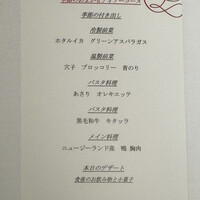 季節の付き出し
冷製前菜
ホタルイカ グリーンアスパラガス
温製前菜
穴子 ブロッコリー 青のり
パスタ料理
あさり オレキエッテ
パスタ料理
黒毛和牛 キタッラ
メイン料理
ニュージーランド産 鴨 胸肉
本日のデザート
食後のお飲み物と小菓子